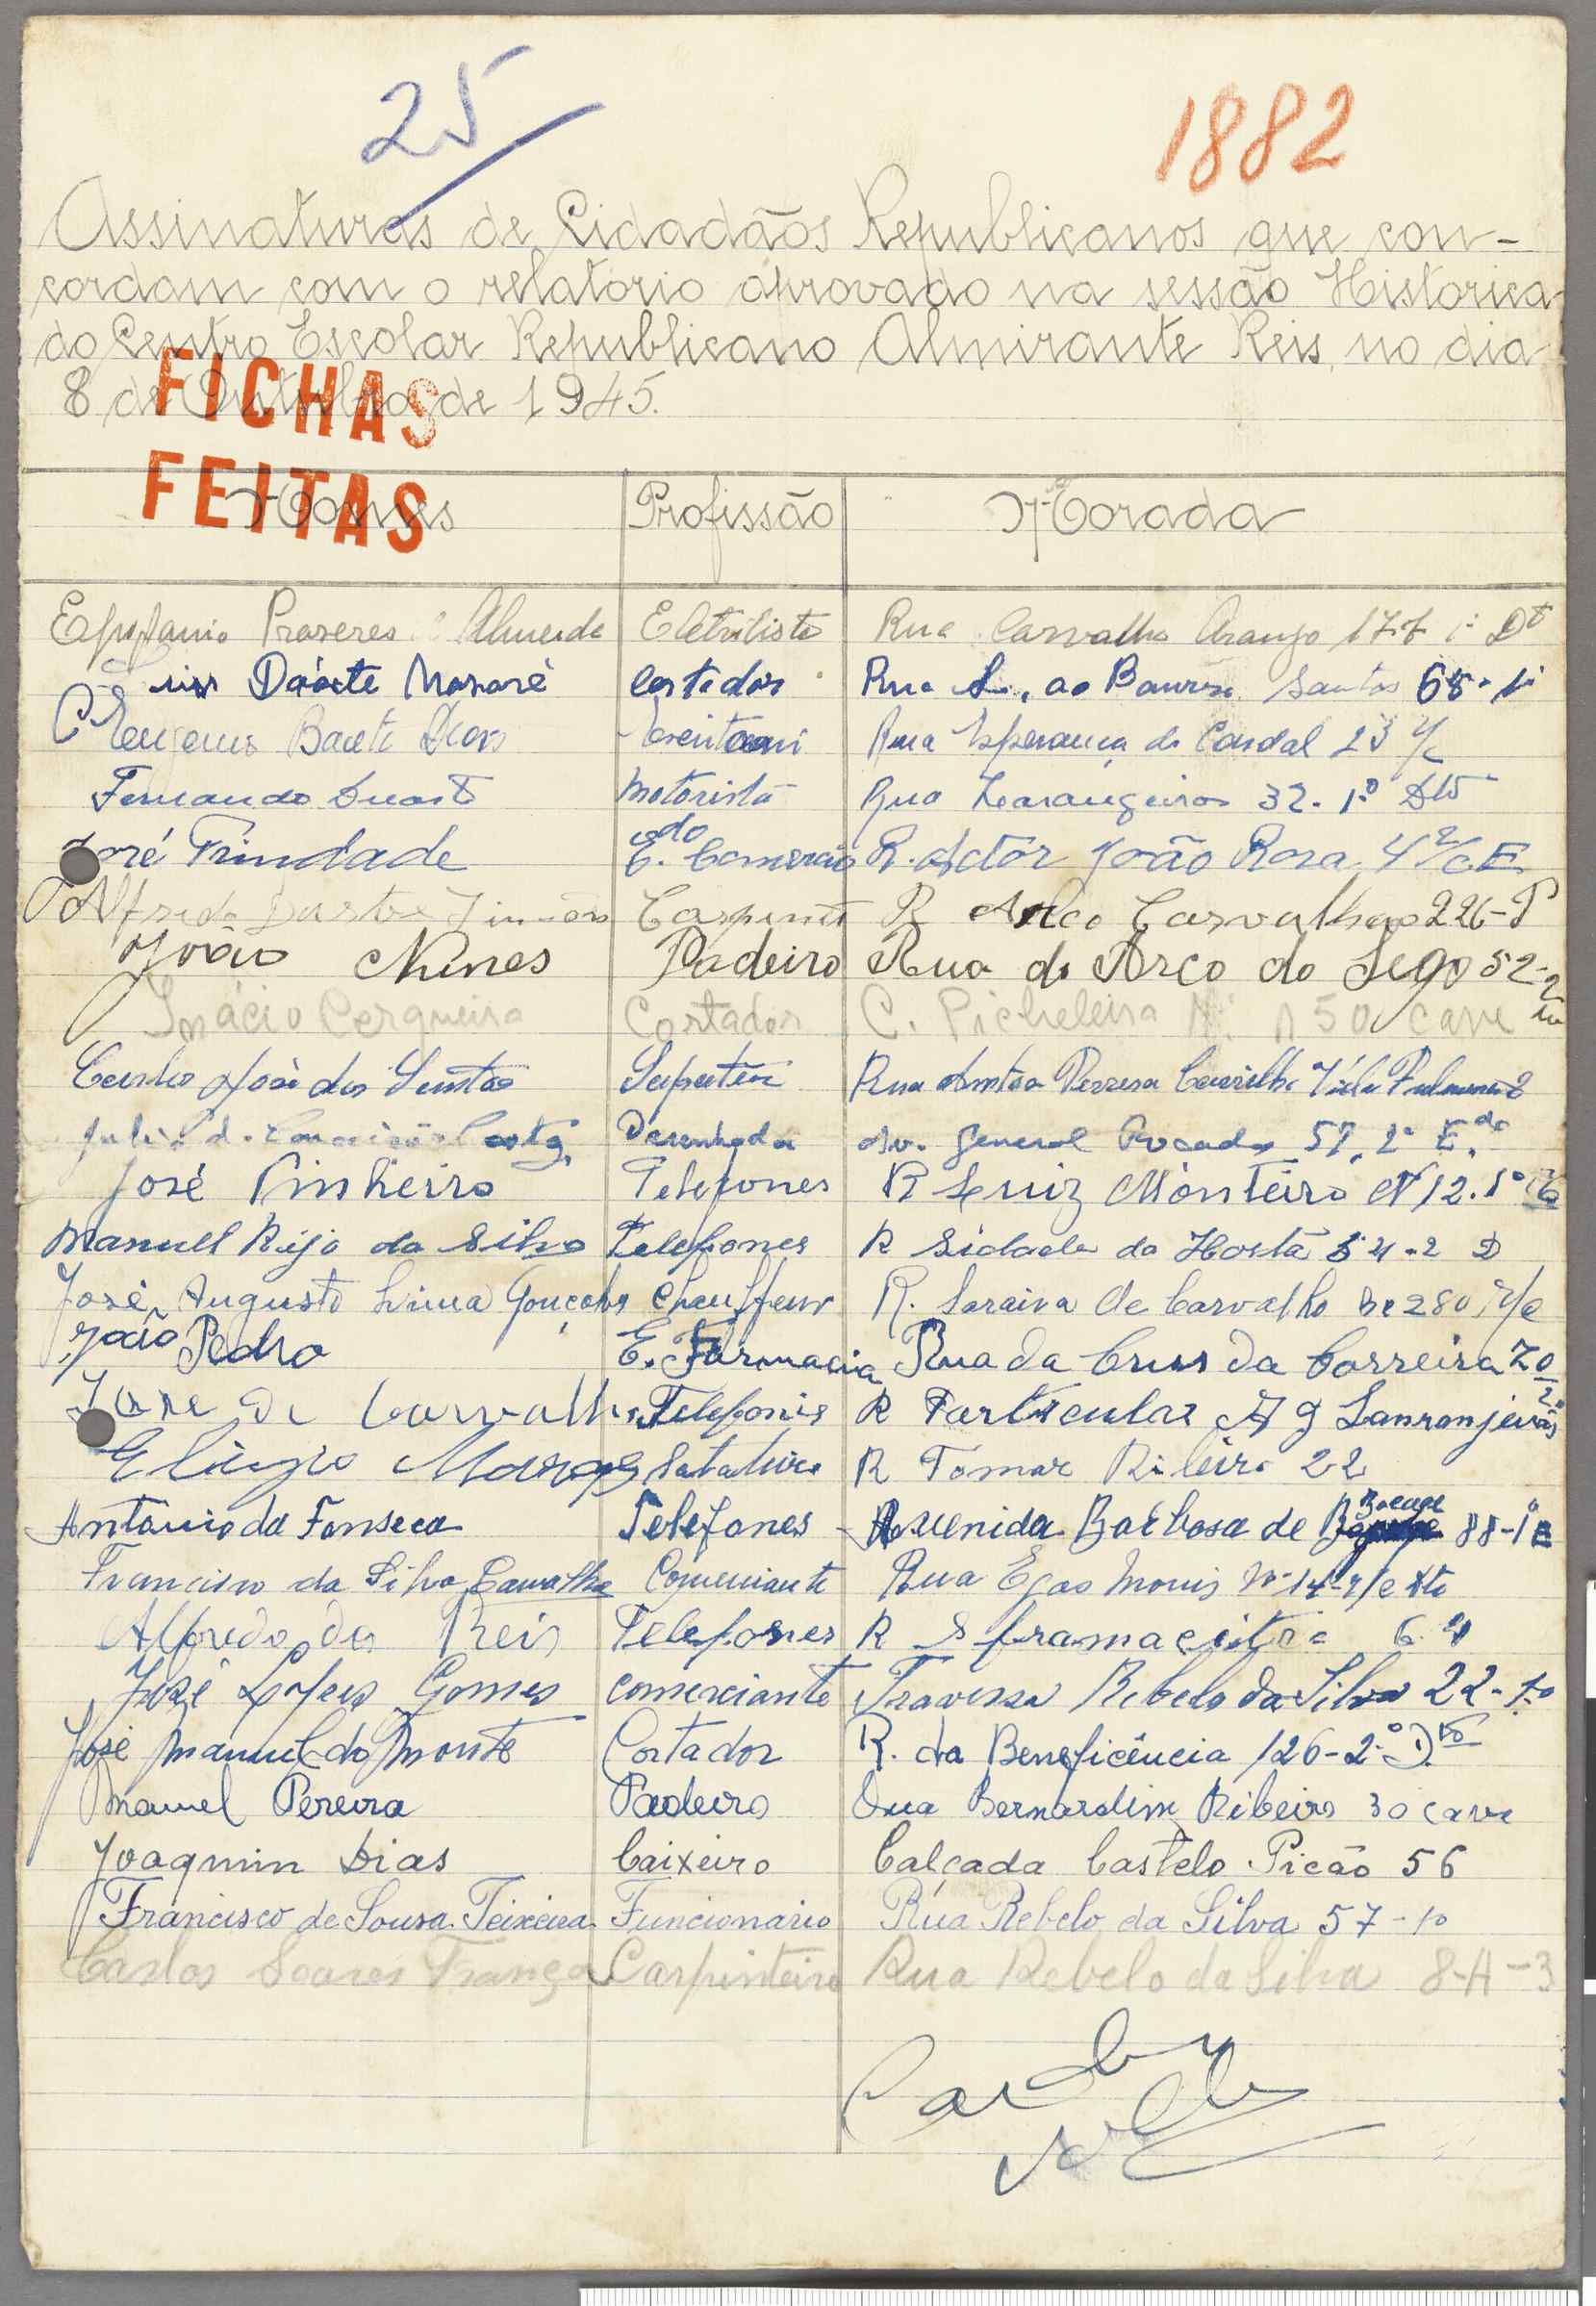 25
1882
Assinaturas de Cidadãos Republicanos que con-
cordam com o relatorio aprovado na sessão Historica
do Centro Escolar Republicano Almirante Reis, no dia
8 de Outubro de 1945.
FICHAS
FEITAS
Nomes Profissão Morada
Epifanio Prazeres Almeida Eletrilista Rua Carvalho Araujo 177 1º Dt
Duarte Nazaré Cortador Rua 68-1º
Eugenio Rua Esperança do Cardal 23 r/c
Fernando Duarte motorista Rua Laranjeiras 32-1º Dto
José Trindade E.do Comercio R. Actôr João Rosa 4 r/c E
Alfredo Duarte R Arco Carvalhão 226-P
João Nunes Padeiro Rua do Arco do Sego 52-2
Inácio Cerqueira Cortador C. Picheleira Nº 150 cave
Carlos José dos Santos Rua Antão Vila
Julio da Conceição Costa Desenhador Av. General Rocadas 57, 2º E.do
José Pinheiro Telefones R Luiz Monteiro Nº 12.1º
Manuel Rijo da Silva Telefones R Sidade da Hortã 54-2 D
José Augusto Lima Gonçalves Chauffeur R. Saraiva de Carvalho 280, r/c
João Pedro E. Farmacia Rua da Crus da Carreira 70
José de Carvalho Telefonis R Particular A g Lanranjeiras
Eliugio Marques R Tomar Ribeiro 22
Antonio da Fonseca Telefones Avenida Barbosa de Bocage 88-1º E
Francisco da Silva Carvalho Comerciante Rua Egas Monis Nº-14-r/c dto
Alfredo dos Reis Telefones R 6
José Lopes Gomes comerciante Travessa Rebelo da Silva 22-1º
José Manuel do Monte Cortador R. da Beneficência 126-2º D.to
Manuel Pereira Padeiro Rua Bernardim Ribeiro 30 cave
Joaquim Dias Caixeiro Calçada Castelo Picão 56
Francisco de Sousa Teixeira Funcionario Rúa Rebelo da Silva 57-1º
Carlos Soares França Carpinteiro Rua Rebelo da Silva 8-A-3